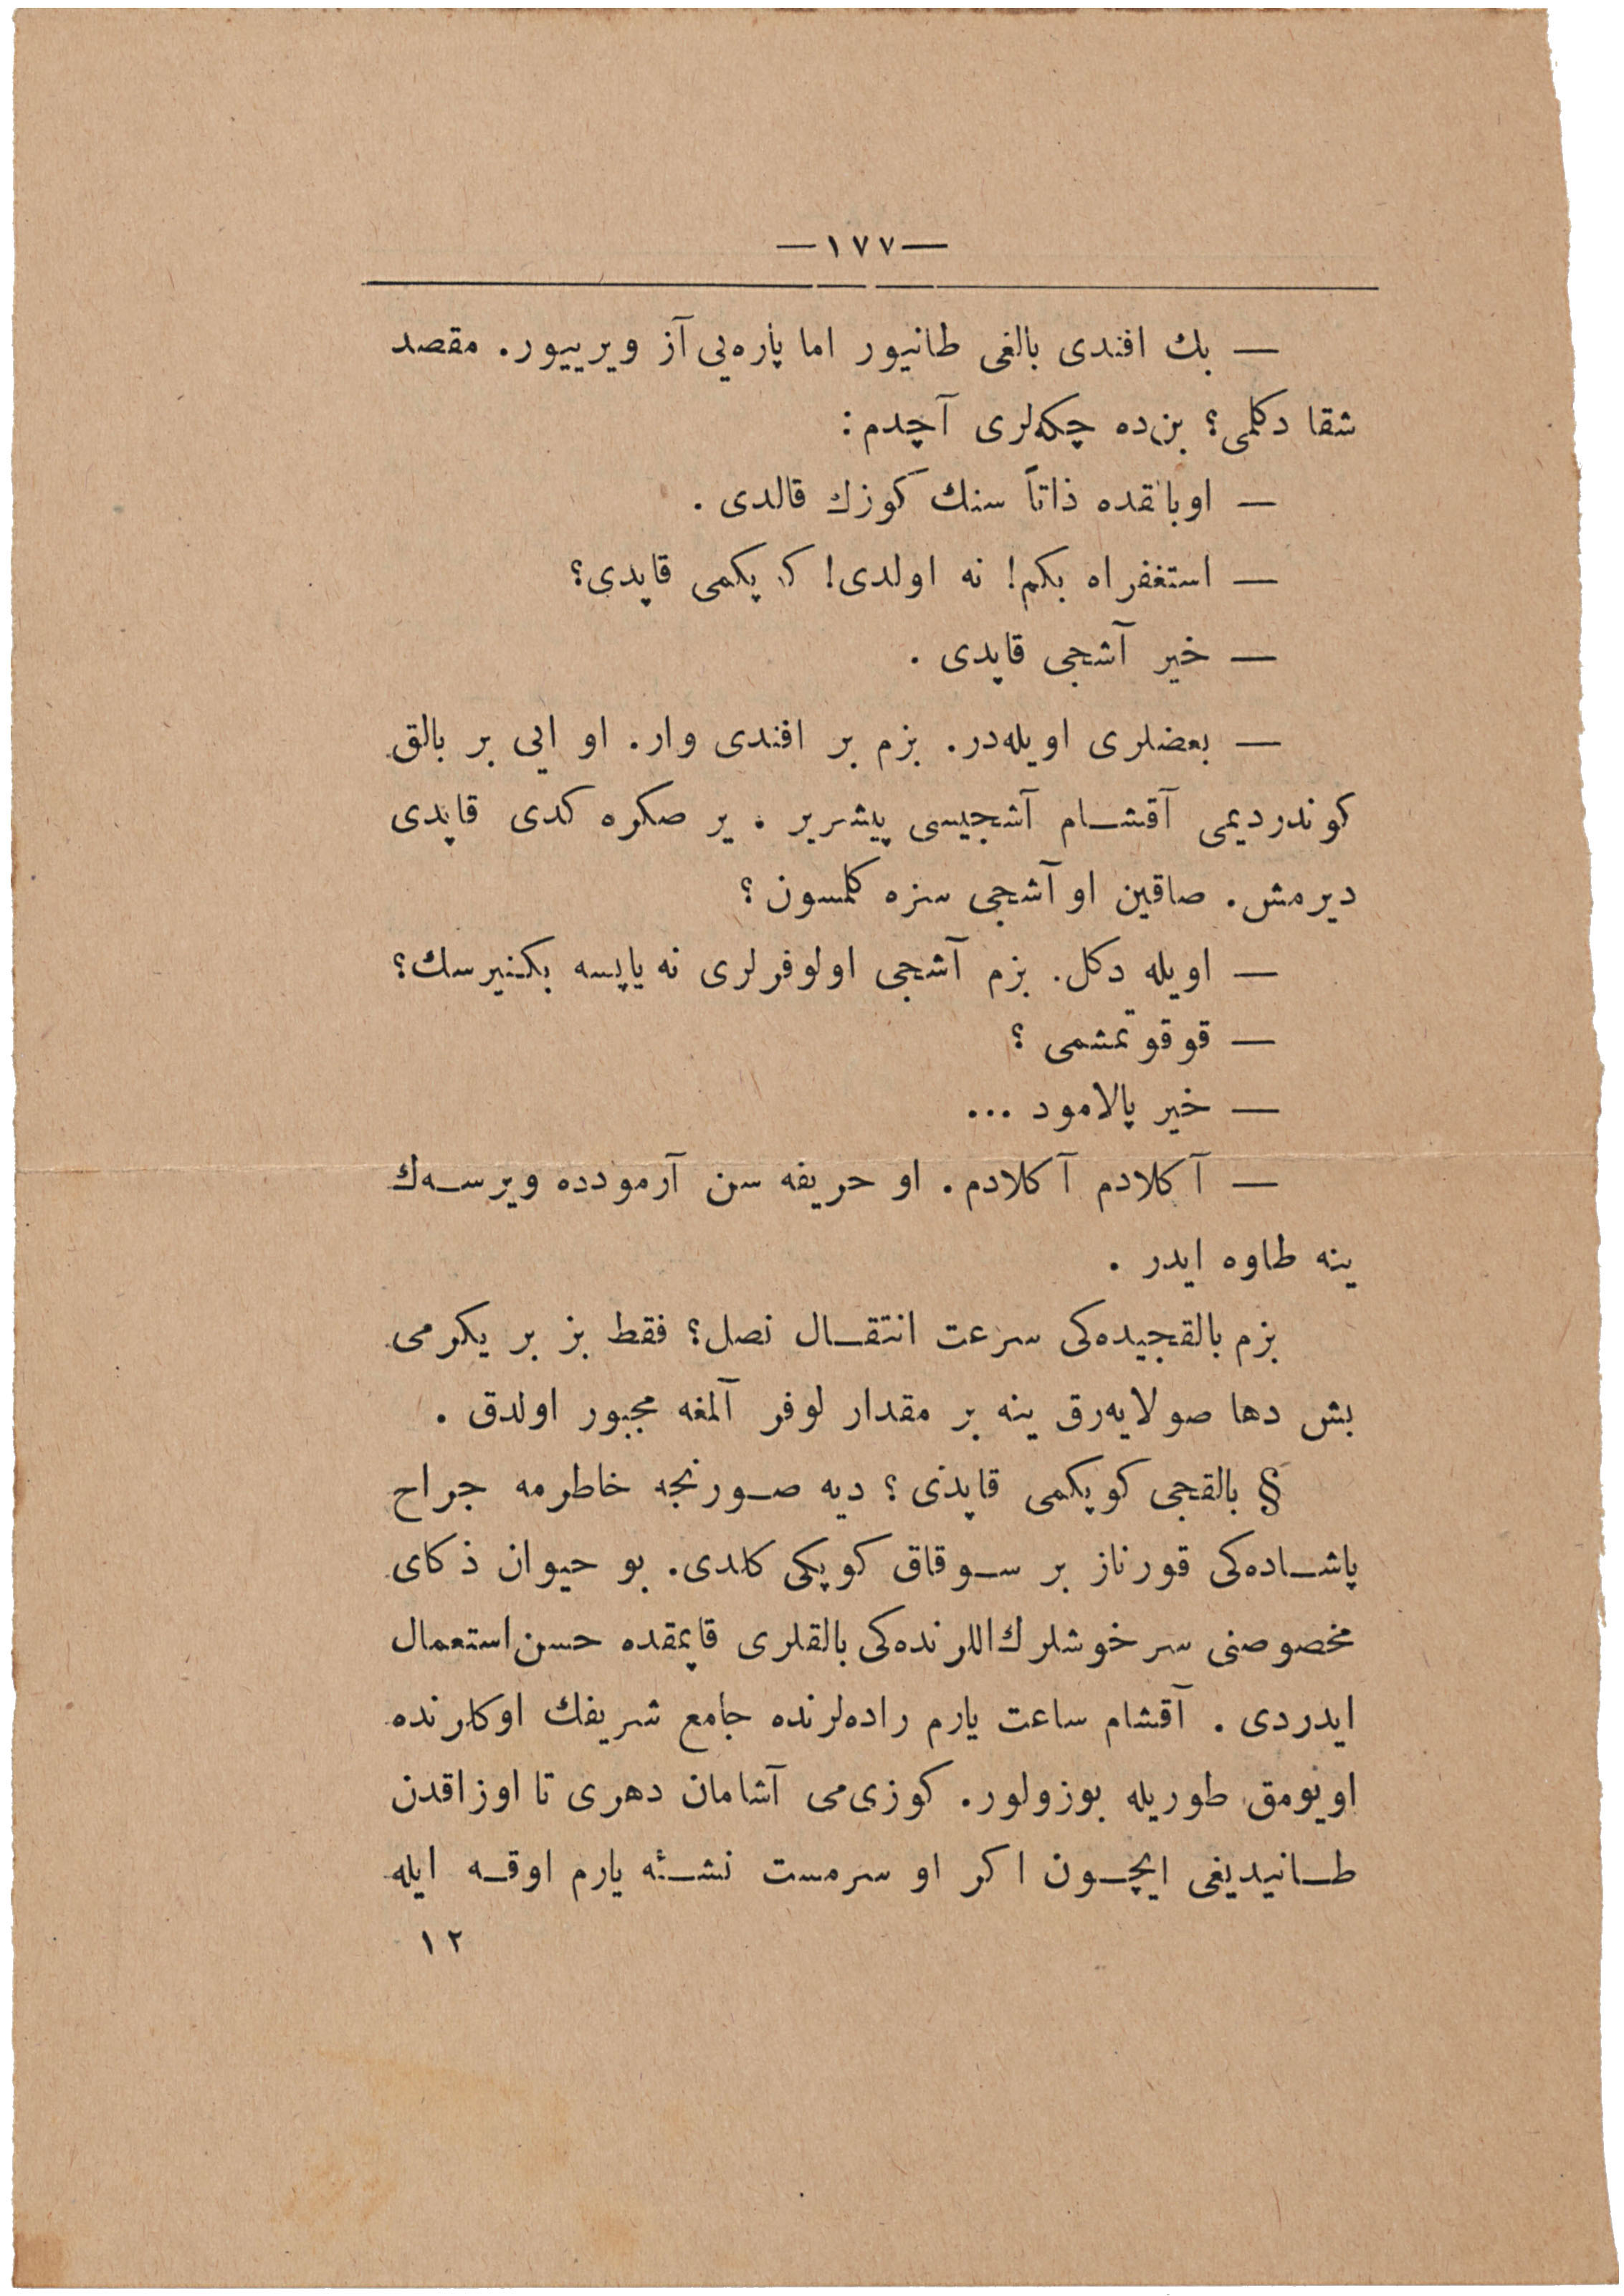 — ١٧٧ —
— بك افندی بالغی طانیور اما پاره‌یی آز ویرییور. مقصد
شقا دكلمی؟ بن‌ده چكه‌لری آچدم:
— اوبالقده ذاتاً سنك كوزك قالدی .
— استغفراه بكم! نه اولدی! كوپكمی قاپدی؟
— خیر آشجی قاپدی .
— بعضلری اویله‌در. بزم بر افندی وار. او ایی بر بالق
كوندردیمی آقشام آشجیسی پیشریر . یر صكره كدی قاپدی
دیرمش. صاقین او آشجی سزه كلمسون ؟
— اویله دكل. بزم آشجی اولوفرلری نه یاپسه بكنیرسك؟
— قوقوتمشمی ؟
— خیر پالامود ...
— آكلادم آكلادم. او حریفه سن آرمودده ویرسه‌ك
ینه طاوه ایدر .
بزم بالقجیده‌كی سرعت انتقال نصل؟ فقط بز بر یكرمی
بش دها صولایه‌رق ینه بر مقدار لوفر آلمغه مجبور اولدق .
§ بالقجی كوپكمی قاپدی ؟ دیه صورنجه خاطرمه جراح
پاشاده‌كی قورناز بر سوقاق كوپكی كلدی. بو حیوان ذكای
مخصوصنی سرخوشلرك اللرنده‌كی بالقلری قاپمقده حسن استعمال
ایدردی . آقشام ساعت یارم راده‌لرنده جامع شریفك اوكلرنده
اویومق طوریله بوزولور. كوزی‌می آشامان دهری تا اوزاقدن
طانیدیغی ایچون اكر او سرمست نشئه یارم اوقه ایله
١٢